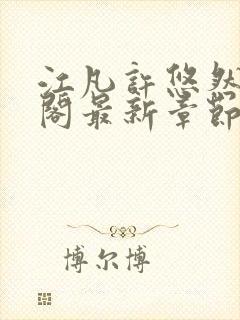 江凡許悠然
閣最新章節
博尔博